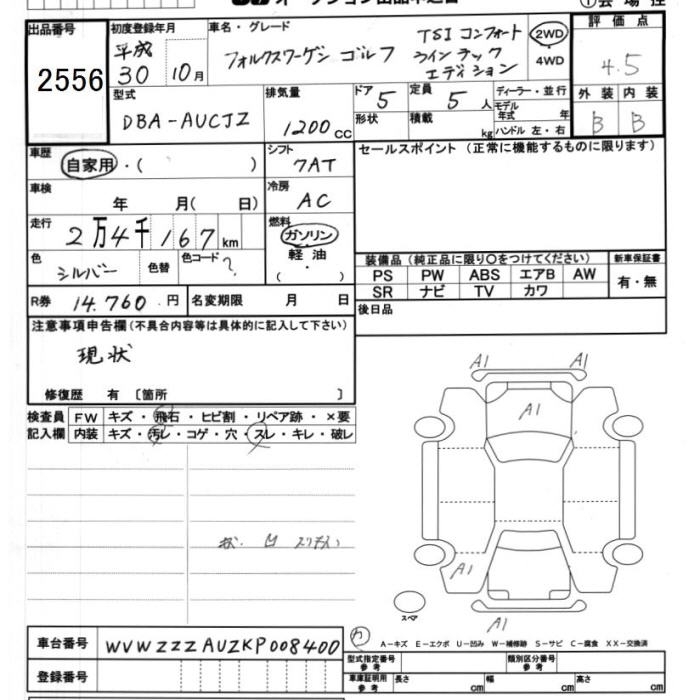 オークション出品申込書
①会場控
出品番号
2556
初度登録年月
平成
30 10月
車名・グレード
フォルクスワーゲン ゴルフ
TSI コンフォート
ラインテック
エディション
2WD
・
4WD
評価点
4.5
外装 内装
B B
型式
DBA-AUCJZ
排気量
1200cc
ドア 5
形状
定員 5人
積載 kg
ディーラー・並行
モデル年式 年
ハンドル 左・右
車歴
自家用・( )
シフト
7AT
車検
年 月( 日)
冷房
AC
走行
2万4千167km
燃料
ガソリン
軽油
( ・ )
色
シルバー
色替
色コード ?
R券 14,760.円
名変期限 月 日
セールスポイント (正常に機能するものに限ります)
装備品 (純正品に限り〇をつけてください)
PS PW ABS エアB AW
SR ナビ TV カワ
新車保証書
有・無
後日品
注意事項申告欄(不具合内容等は具体的に記入して下さい)
現状
修復歴 有 〔箇所 〕
検査員
記入欄
FW キズ・飛石・ヒビ割・リペア跡・×要
内装 キズ・汚レ・コゲ・穴・スレ・キレ・破レ
A1 A1
A1
A1
A1
スペア
車台番号 WVWZZZAUZKP008400
登録番号
カ
A-キズ E-エクボ U-凹み W-補修跡 S-サビ C-腐食 XX-交換済
型式指定番号 参考
類別区分番号 参考
車庫証明用 参考
長さ cm
幅 cm
高さ cm